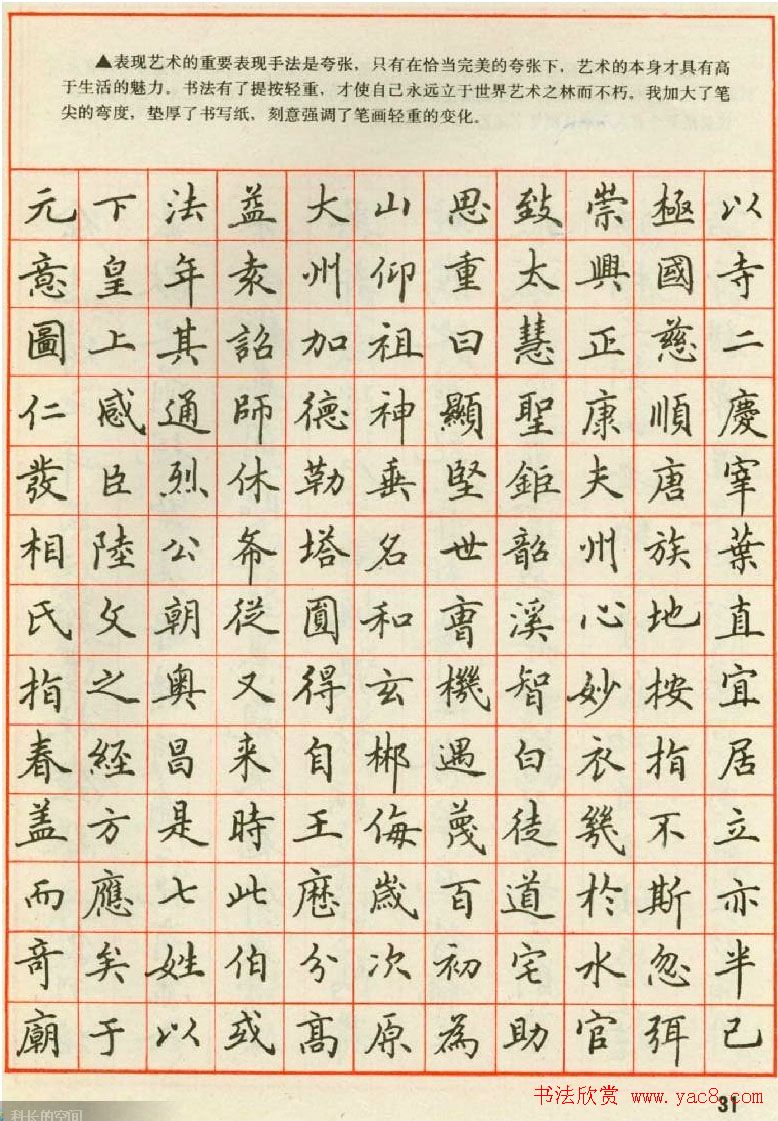 ▲表现艺术的重要表现手法是夸张，只有在恰当完美的夸张下，艺术的本身才具有高
于生活的魅力。书法有了提按轻重，才使自己永远立于世界艺术之林而不朽。我加大了笔
尖的弯度，垫厚了书写纸，刻意强调了笔画轻重的变化。
元下法益大山思致崇極以
意皇年袁州仰重太興國寺
圖上其詔加祖曰慧正慈二
仁感通師德神顯聖康順慶
發臣烈休勒垂堅鉅夫唐宰
相陸公希塔名世韶州族葉
氏文朝從圓和曹溪心地直
指之奧又得玄機智妙按宜
春經昌来自郴遇白衣指居
盖方是時王侮蔑徒幾不立
而應七此歷歲百道於斯亦
奇矣姓伯分次初宅水忽半
廟于以或高原為助官弭己
书法欣赏 www.yac8.com
31
科长的空间